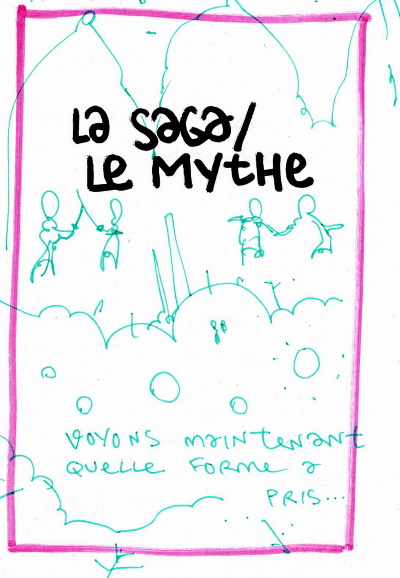 La SaGa/
Le MYtHe
VOYONS MaINteNaNt
QUeLLe FORMe a
PRIS...